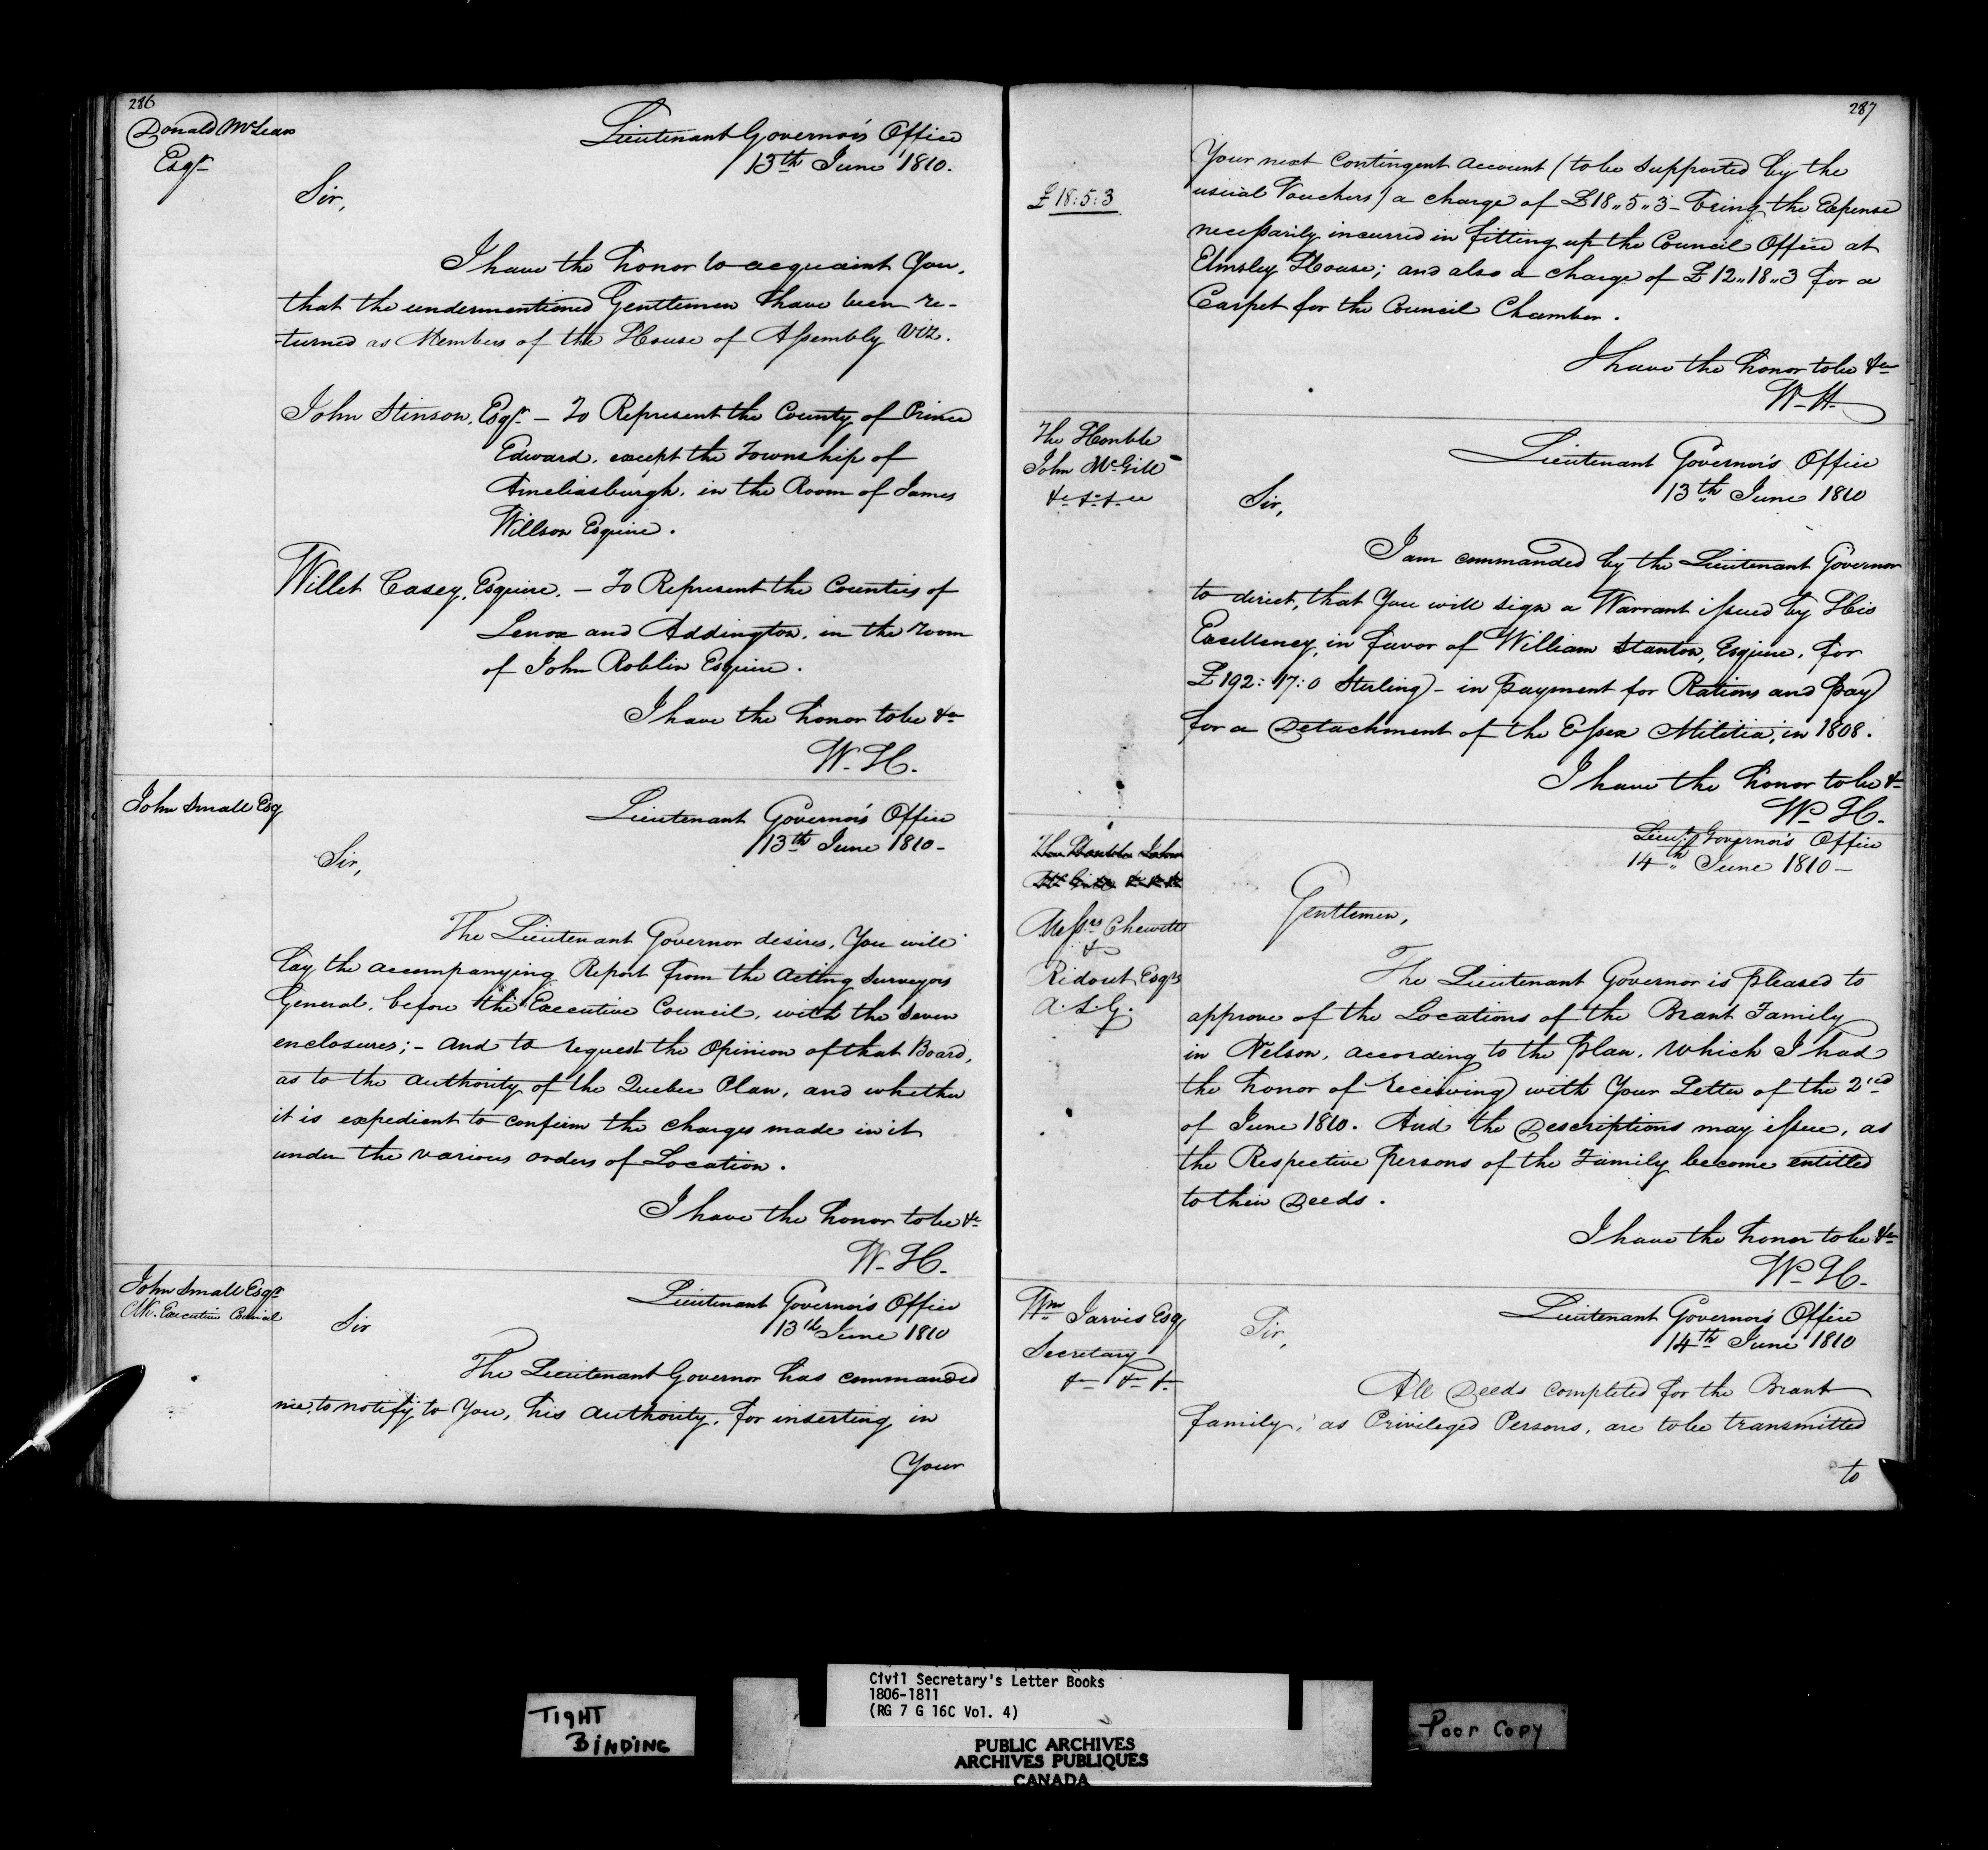 286
Donald McLean
Esqr
Lieutenant Governor's Office
13th June 1810.
Sir,
I have the honor to acquaint You,
that the undermentioned Gentlemen have been re-
-turned as Members of the House of Assembly Viz.
John Stinson, Esqr - To Represent the County of Prince
Edward, except the Township of
Ameliasburgh, in the Room of James
Willson Esquire.
Willet Casey, Esquire. - To Represent the Counties of
Lenox and Addington, in the room
of John Roblin Esquire.
I have the honor to be &c
W. H.
John Small Esq
Lieutenant Governor's Office
13th June 1810-
Sir,
The Lieutenant Governor desires, You will
lay the accompanying Report from the Acting Surveyors
General, before the Executive Council, with the seven
enclosures; - And to request the Opinion of that Board,
as to the authority of the Quebec Plan, and whether
it is expedient to confirm the charges made in it
under the various orders of Location.
I have the honor to be &c
W. H.
John Small Esqr
Clk. Executive Council
Lieutenant Governor's Office
13th June 1810
Sir
The Lieutenant Governor has commanded
me, to notify to You, his authority, for inserting in
Your
287
£18:5:3
Your next Contingent Account (to be supported by the
usual Vouchers) a charge of £18"5"3 - being the Expense
necessarily incurred in fitting up the Council Office at
Elmsley House; and also a charge of £12"18"3 for a
Carpet for the Council Chamber.
I have the honor to be &c
W. H.
The Honble
John McGill
&c &c &c
Lieutenant Governor's Office
13th June 1810
Sir,
I am commanded by the Lieutenant Governor
to direct, that You will sign a Warrant issued by His
Excellency, in favor of William Stanton, Esquire, for
£192:17:0 Sterling - in payment for Rations and pay
for a Detachment of the Essex Militia, in 1808.
I have the honor to be &c
W. H.
The Honble John
McGill &c &c &c
Messrs Chewett
&
Ridout Esqrs
A. S. G.
Lieut. Governor's Office
14th June 1810-
Gentlemen,
The Lieutenant Governor is pleased to
approve of the Locations of the Brant Family
in Nelson, according to the plan, which I had
the honor of receiving with Your Letter of the 2nd
of June 1810. And the Descriptions may issue, as
the Respective persons of the Family become entitled
to their Deeds.
I have the honor to be &c
W. H.
Wm Jarvis Esq
Secretary
&c &c &c
Lieutenant Governor's Office
14th June 1810
Sir,
All Deeds completed for the Brant
family, as Privileged Persons, are to be transmitted
to
TIGHT
BINDING
Civil Secretary's Letter Books
1806-1811
(RG 7 G 16C Vol. 4)
PUBLIC ARCHIVES
ARCHIVES PUBLIQUES
CANADA
Poor Copy